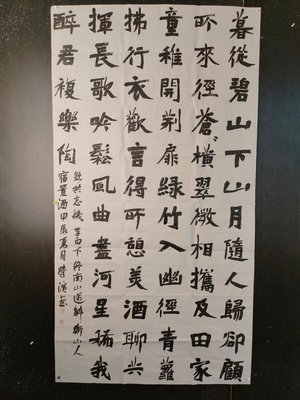 暮從碧山下山月隨人歸卻顧
所來徑蒼〻橫翠微相攜及田家
童稚開荊扉綠竹入幽徑青蘿
拂行衣歡言得所憩美酒聊共
揮長歌吟鬆風曲盡河星稀我
醉君複樂陶
然共忘機 李白下終南山過斛斯山人
宿置酒甲辰夏月